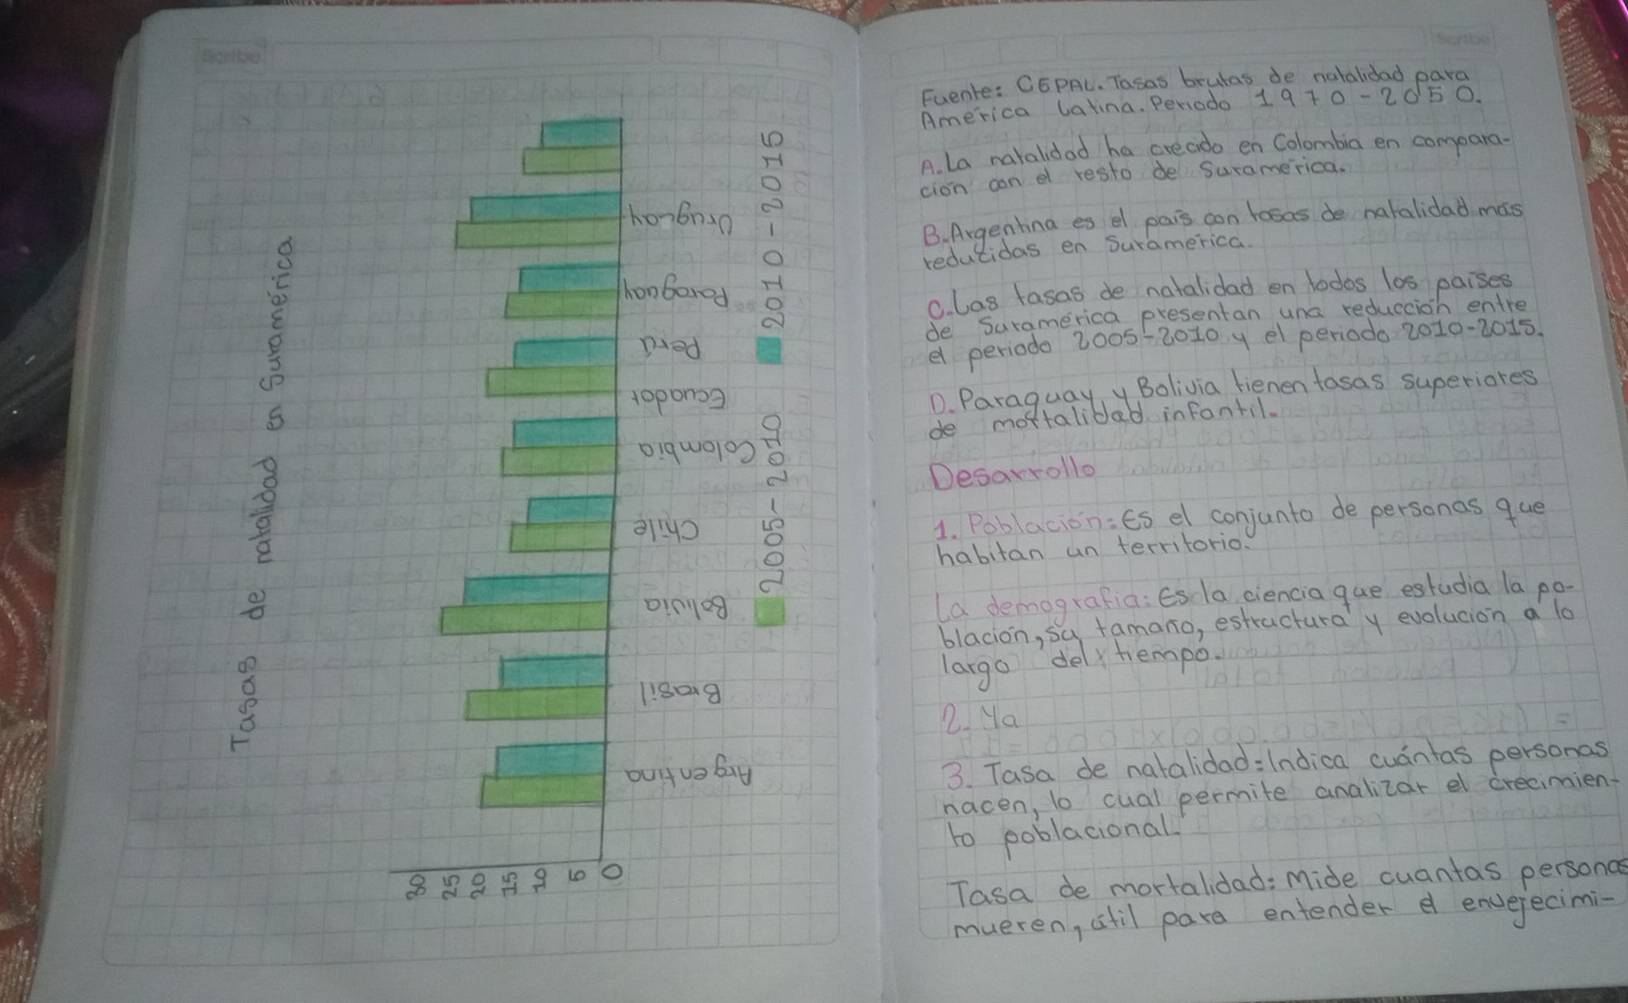 Scribe
Tasas de natalidad en Suramérica
30
25
20
15
10
5
0
Argentina
Brasil
Bolivia
Chile
Colombia
Ecuador
Perú
Paraguay
Uruguay
2005-2010
2010-2015
Scribe
Fuente: CEPAL. Tasas brutas de natalidad para
América Latina. Periodo 1970-2050.
A. La natalidad ha crecido en Colombia en compara-
ción con el resto de Suramérica.
B. Argentina es el país con tasas de natalidad más
reducidas en Suramérica.
C. Las tasas de natalidad en todos los países
de Suramérica presentan una reducción entre
el periodo 2005-2010 y el periodo 2010-2015.
D. Paraguay y Bolivia tienen tasas superiores
de mortalidad infantil.
Desarrollo
1. Población: Es el conjunto de personas que
habitan un territorio.
La demografía: Es la ciencia que estudia la po-
blación, su tamaño, estructura y evolución a lo
largo del tiempo.
2. Ya
3. Tasa de natalidad: Indica cuántas personas
nacen, lo cual permite analizar el crecimien-
to poblacional.
Tasa de mortalidad: Mide cuantas personas
mueren, útil para entender el envejecimi-